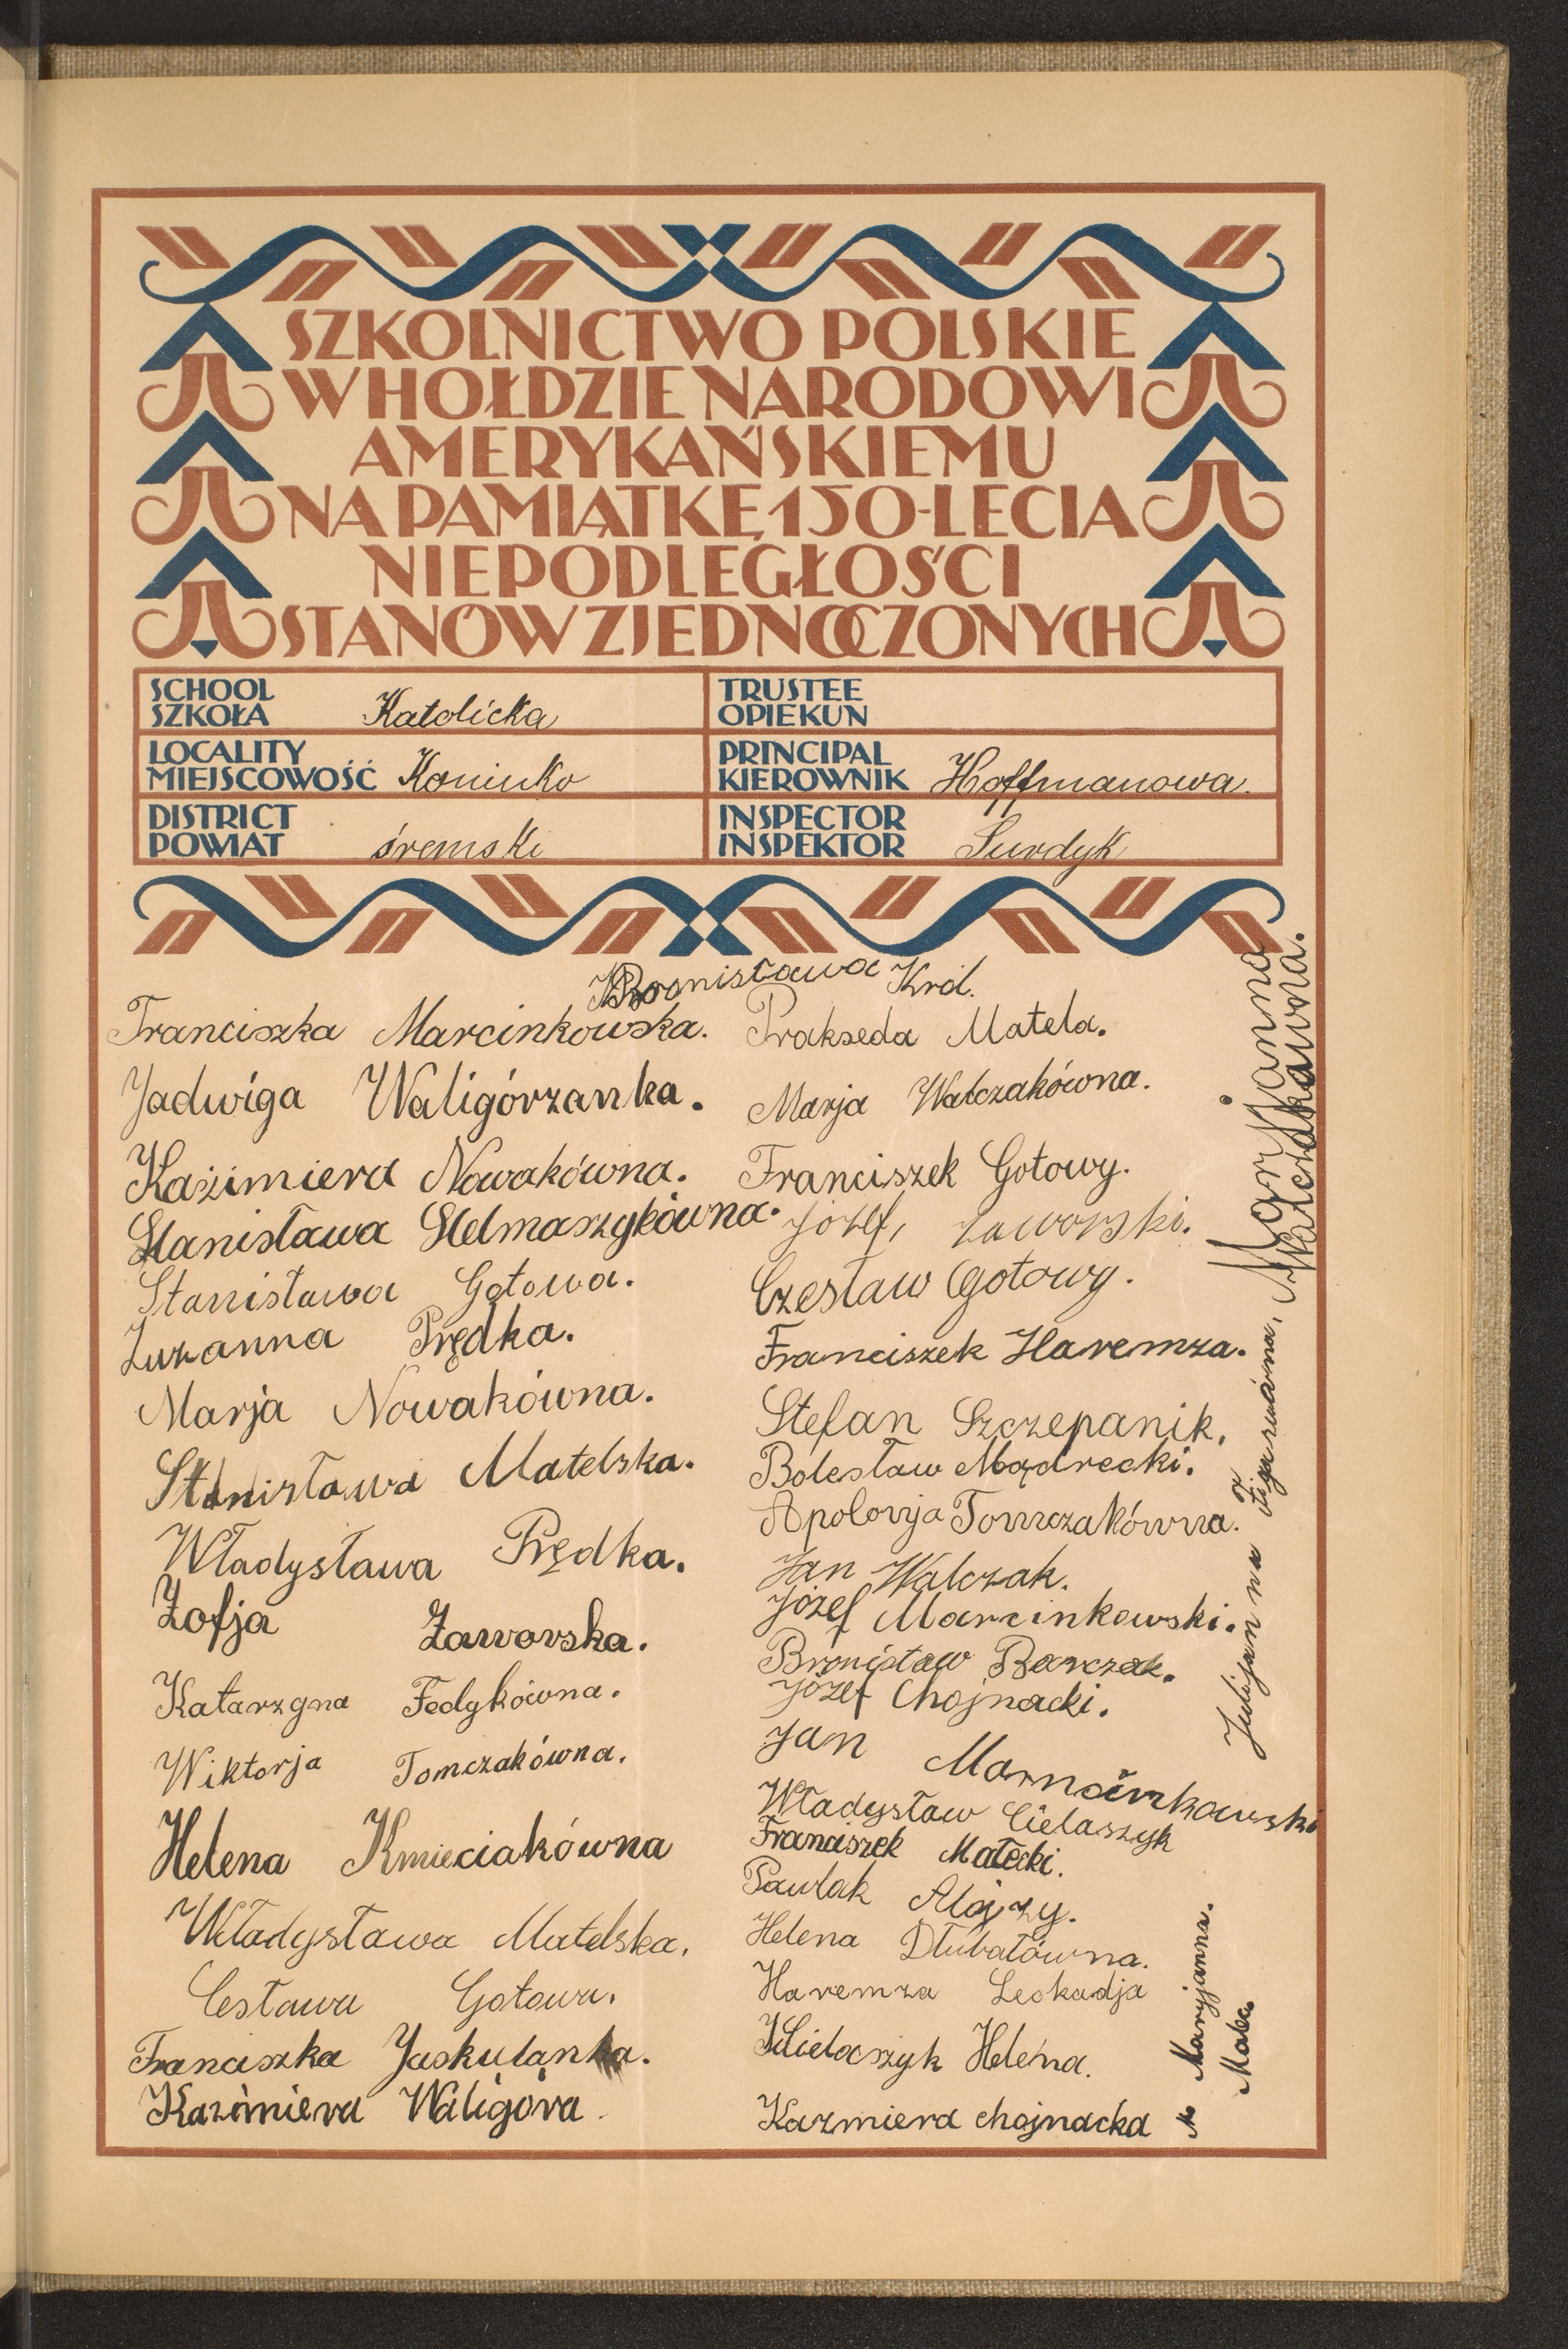 SZKOLNICTWO POLSKIE
W HOŁDZIE NARODOWI
AMERYKAŃSKIEMU
NA PAMIĄTKĘ 150-LECIA
NIEPODLEGŁOŚCI
STANÓW ZJEDNOCZONYCH
SCHOOL
SZKOŁA Katolicka
TRUSTEE
OPIEKUN
LOCALITY
MIEJSCOWOŚĆ Koninko
PRINCIPAL
KIEROWNIK Hoffmanowa.
DISTRICT
POWIAT śremski
INSPECTOR
INSPEKTOR Surdyk
Bronisława Król.
Franciszka Marcinkowska.
Jadwiga Waligórzanka.
Kaźimiera Nowakówna.
Stanisława Stelmaszykówna.
Stanisława Gotowa.
Zuzanna Prędka.
Marja Nowakówna.
Stanisława Matelska.
Władysława Prędka.
Zofja Zaworska.
Katarzyna Fedykówna.
Wiktorja Tomczakówna.
Helena Kmieciakówna
Władysława Matelska.
Cesława Gotowa.
Franciszka Jaskulanka.
Kazimiera Waligóra.
Prakseda Matela.
Marja Walczakówna.
Franciszek Gotowy.
Józef, Zaworski.
Czesław Gotowy.
Franciszek Haremza.
Stefan Szczepanik.
Bolesław Mądrecki.
Apolonja Tomczakówna.
Jan Walczak.
Józef Marcinkowski.
Bronisław Barczak.
Józef Chojnacki.
Jan
Władysław Cielaszyk
Franciszek Małecki.
Pawlak Alojzy.
Helena Dłubałówna.
Haremza Leokadja
Helena.
Kazmiera chojnacka
Marjanna
Walczakówna.
Maryjanna.
Malec.